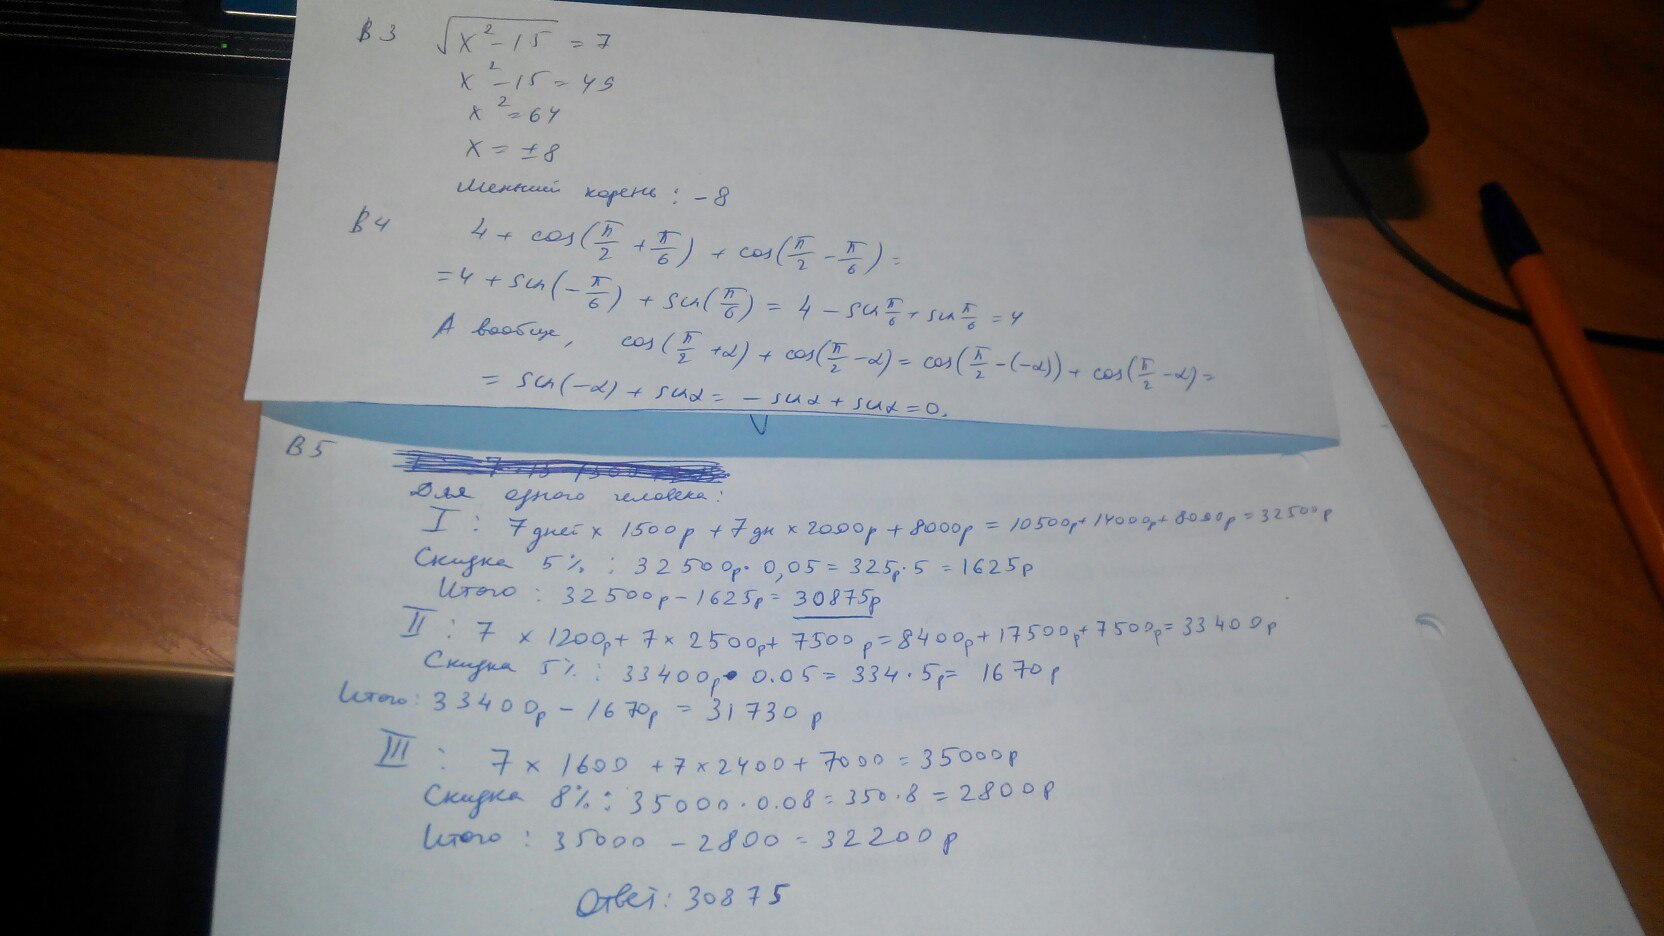 В3 √x²-15 = 7
x²-15 = 49
x² = 64
x = ±8
Менший корень: -8
В4 4 + cos(π/2 + π/6) + cos(π/2 - π/6) =
= 4 + sin(-π/6) + sin(π/6) = 4 - sin π/6 + sin π/6 = 4
А вообще, cos(π/2 + α) + cos(π/2 - α) = cos(π/2 - (-α)) + cos(π/2 - α) =
= sin(-α) + sin α = - sin α + sin α = 0.
В5
Для одного человека:
I : 7 дней x 1500р + 7 дн x 2000р + 8000р = 10500р + 14000р + 8000р = 32500р
Скидка 5% : 32500р · 0,05 = 325р · 5 = 1625р
Итого : 32500р - 1625р = 30875р
II : 7 x 1200р + 7 x 2500р + 7500р = 8400р + 17500р + 7500р = 33400р
Скидка 5% : 33400р · 0.05 = 334 · 5р = 1670р
Итого: 33400р - 1670р = 31730р
III : 7 x 1600 + 7 x 2400 + 7000 = 35000р
Скидка 8% : 35000 · 0.08 = 350 · 8 = 2800р
Итого : 35000 - 2800 = 32200р
Ответ: 30875